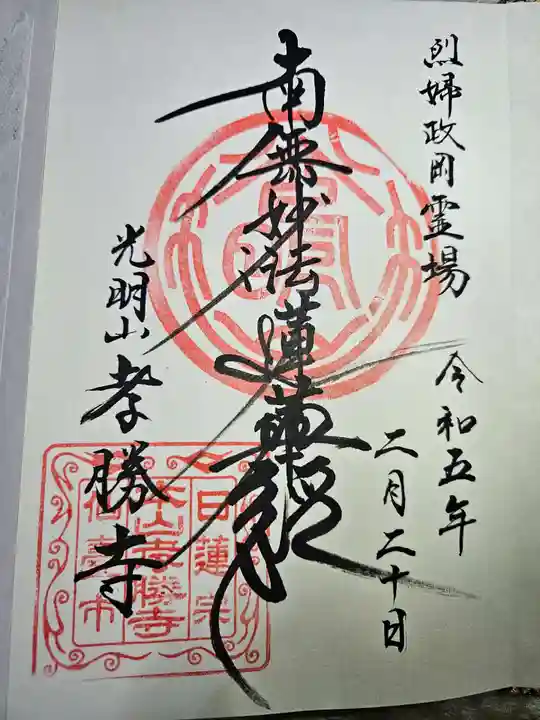 烈婦政岡霊場
令和五年
二月二十日
南無妙法蓮華経
光明山 孝勝寺
日蓮宗
本山孝勝寺
仙臺市